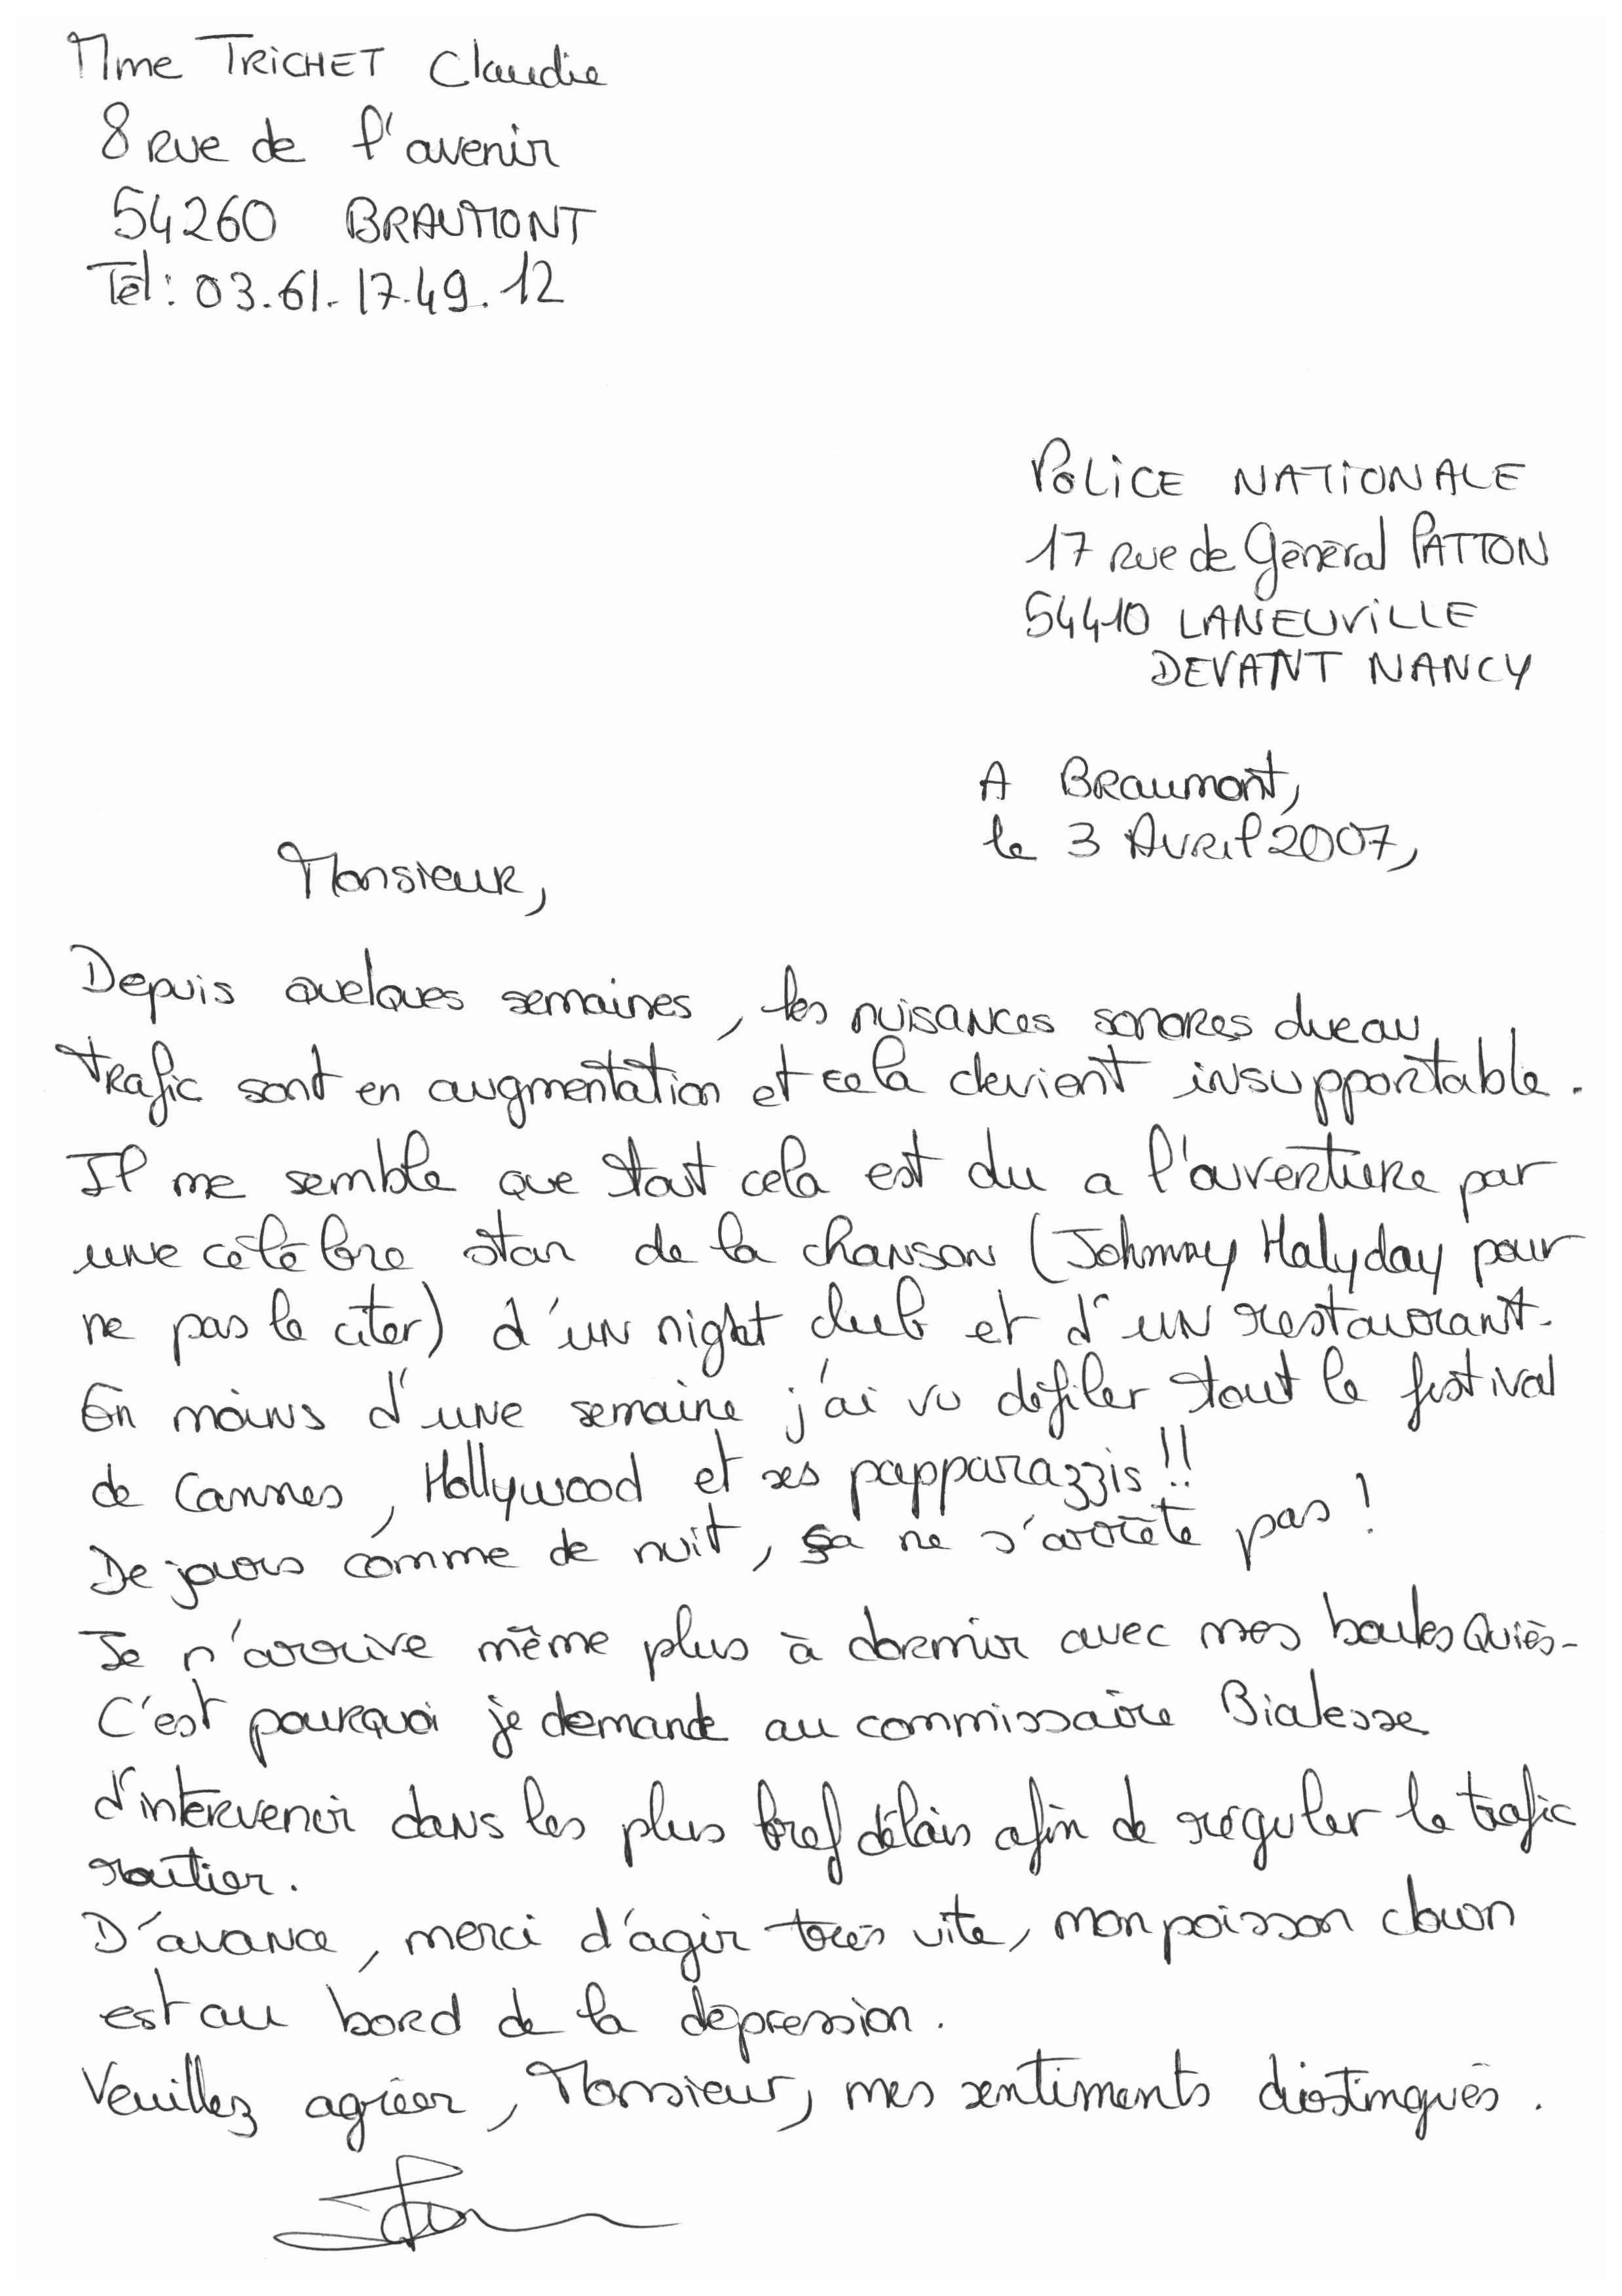 Mme TRICHET Claudie
8 Rue de l'avenir
54260 BRAUMONT
Tél: 03.61.17.49.12
POLICE NATIONALE
17 Rue de Général PATTON
54410 LANEUVILLE
DEVANT NANCY
A Braumont,
le 3 Avril 2007,
Monsieur,
Depuis quelques semaines, les nuisances sonores due au
trafic sont en augmentation et cela devient insupportable.
Il me semble que tout cela est du a l'ouverture par
une célèbre star de la chanson (Johnny Halyday pour
ne pas le citer) d'un night club et d'un restaurant.
En moins d'une semaine j'ai vu défiler tout le festival
de Cannes, Hollywood et ses papparazzis!!
De jours comme de nuit, ça ne s'arrête pas!
Je n'arrive même plus à dormir avec mes boules Quiès.
C'est pourquoi je demande au commissaire Bialesse
d'intervenir dans les plus bref délais afin de réguler le trafic
routier.
D'avance, merci d'agir très vite, mon poisson clown
est au bord de la dépression.
Veuillez agréer, Monsieur, mes sentiments distingués.